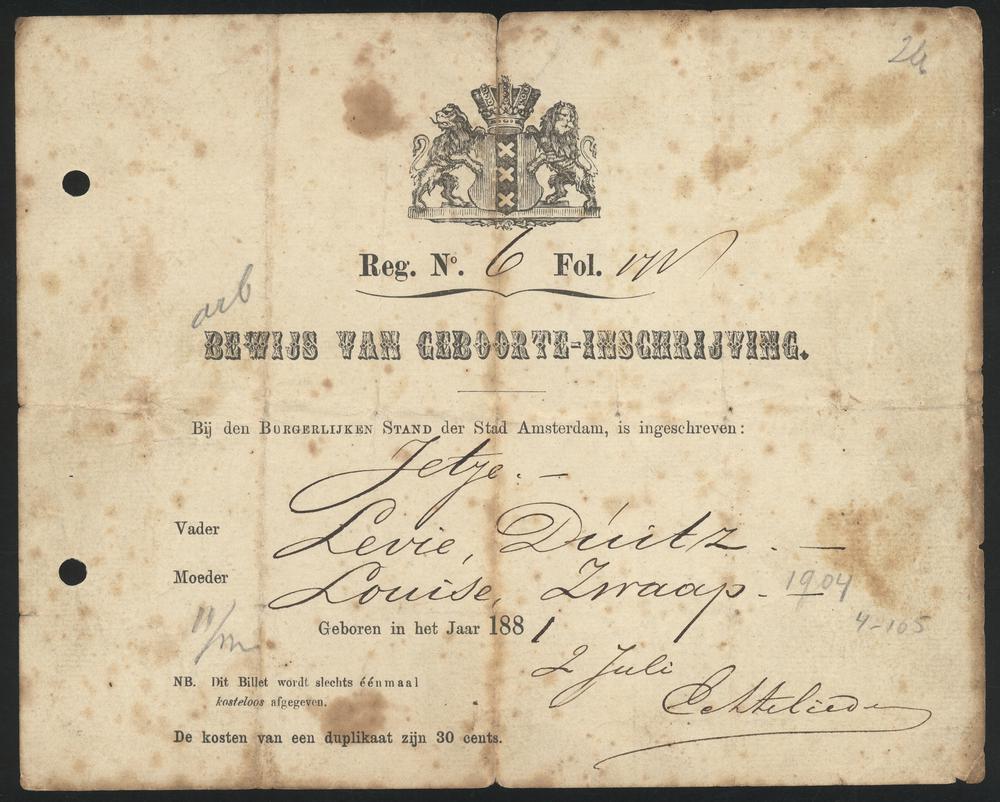 Reg. No. 6 Fol. 171v
arb
BEWIJS VAN GEBOORTE-INSCHRIJVING.
Bij den BURGERLIJKEN STAND der Stad Amsterdam, is ingeschreven:
Jetje. —
Vader Levie, Duitz. —
Moeder Louise, Zwaap. —
1904
4-105
Geboren in het Jaar 1881
2 Juli
NB. Dit Billet wordt slechts éénmaal
kosteloos afgegeven.
De kosten van een duplikaat zijn 30 cents.